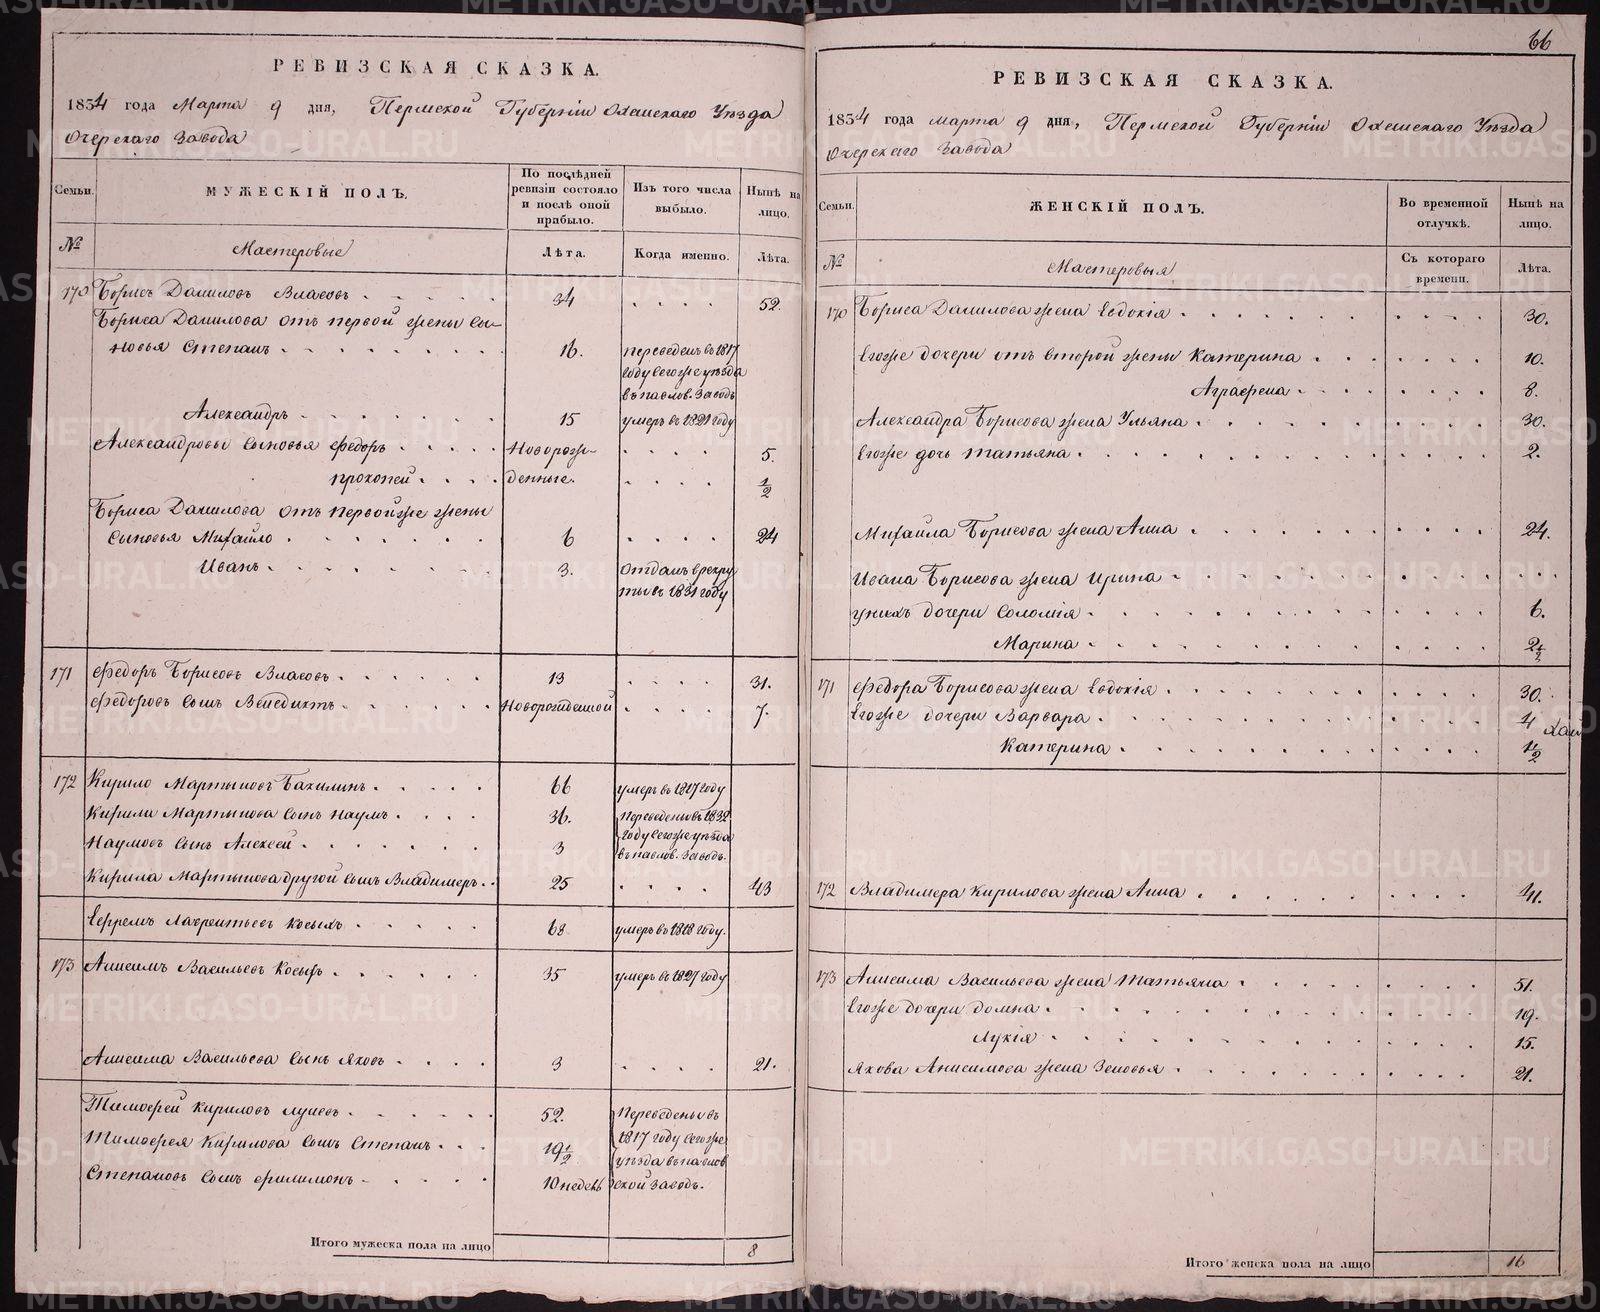 РЕВИЗСКАЯ СКАЗКА.
1834 года Марта 9 дня, Пермской Губернiи Оханскаго Уѣзда
Очерскаго Завода
Семьи.
МУЖЕСКIЙ ПОЛЪ.
По послѣдней ревизiи состояло и послѣ оной прибыло.
Изъ того числа выбыло.
Нынѣ на лицо.
№
Мастеровые
Лѣта.
Когда именно.
Лѣта.
170 Борисъ Даниловъ Власовъ 34 52.
Бориса Данилова отъ первой жены сы-
новья Степанъ 16. переведенъ в 1817
году сегоже уѣзда
в павлов. заводъ
Александръ 15 умеръ в 1821 году
Александровы сыновья Федоръ Новорож- 5.
прокопей денные. 1/2
Бориса Данилова отъ первойже жены
сыновья Михайло 6 24
Иванъ 3. отданъ в рекру
ты в 1831 году
171 Федоръ Борисовъ Власовъ 13 31.
Федоровъ сынъ Венедиктъ Новорожденной 7.
172 Кирило Мартыновъ Бахилинъ 66 умеръ в 1817 году
Кирила Мартынова сынъ Наумъ 36. Переведены в 1832
году сегоже уѣзда
Наумовъ сынъ Алексей 3 в павлов. заводъ.
Кирила Мартынова другой сынъ Владимеръ 25 43
Ефремъ Лаврентьевъ Косыхъ 68 умеръ в 1818 году.
173 Анисимъ Васильевъ Косыхъ 35 умеръ в 1827 году
Анисима Васильева сынъ Яковъ 3 21.
Тимофей Кириловъ 52. Переведены въ
Тимофея Кирилова сынъ Степанъ 19 1/2 1817 году сегоже
уѣзда в павлов
Степановъ сынъ Филимонъ 10 недель ской заводъ.
Итого мужеска пола на лицо 8
66
РЕВИЗСКАЯ СКАЗКА.
1834 года марта 9 дня, Пермской Губернiи Оханскаго Уѣзда
Очерскаго Завода
Семьи.
ЖЕНСКIЙ ПОЛЪ.
Во временной отлучкѣ.
Нынѣ на лицо.
№
Мастеровыя
Съ котораго времени.
Лѣта.
170 Бориса Данилова жена Евдокiя 30.
Егоже дочери отъ второй жены Катерина 10.
Аграфена 8.
Александра Борисова жена Ульяна 30.
Егоже дочь Татьяна 2.
Михайла Борисова жена Анна 24.
Ивана Борисова жена Ирина
у нихъ дочери Соломiя 6.
Марина 2 1/2
171 Федора Борисова жена Евдокiя 30.
Егоже дочери Варвара 4
Катерина 1/2
172 Владимера Кирилова жена Анна 41.
173 Анисима Васильева жена Татьяна 51.
Егоже дочери домна 19.
Лукiя 15.
Якова Анисимова жена Зеновья 21.
Итого женска пола на лицо 16
METRIKI.GASO-URAL.RU